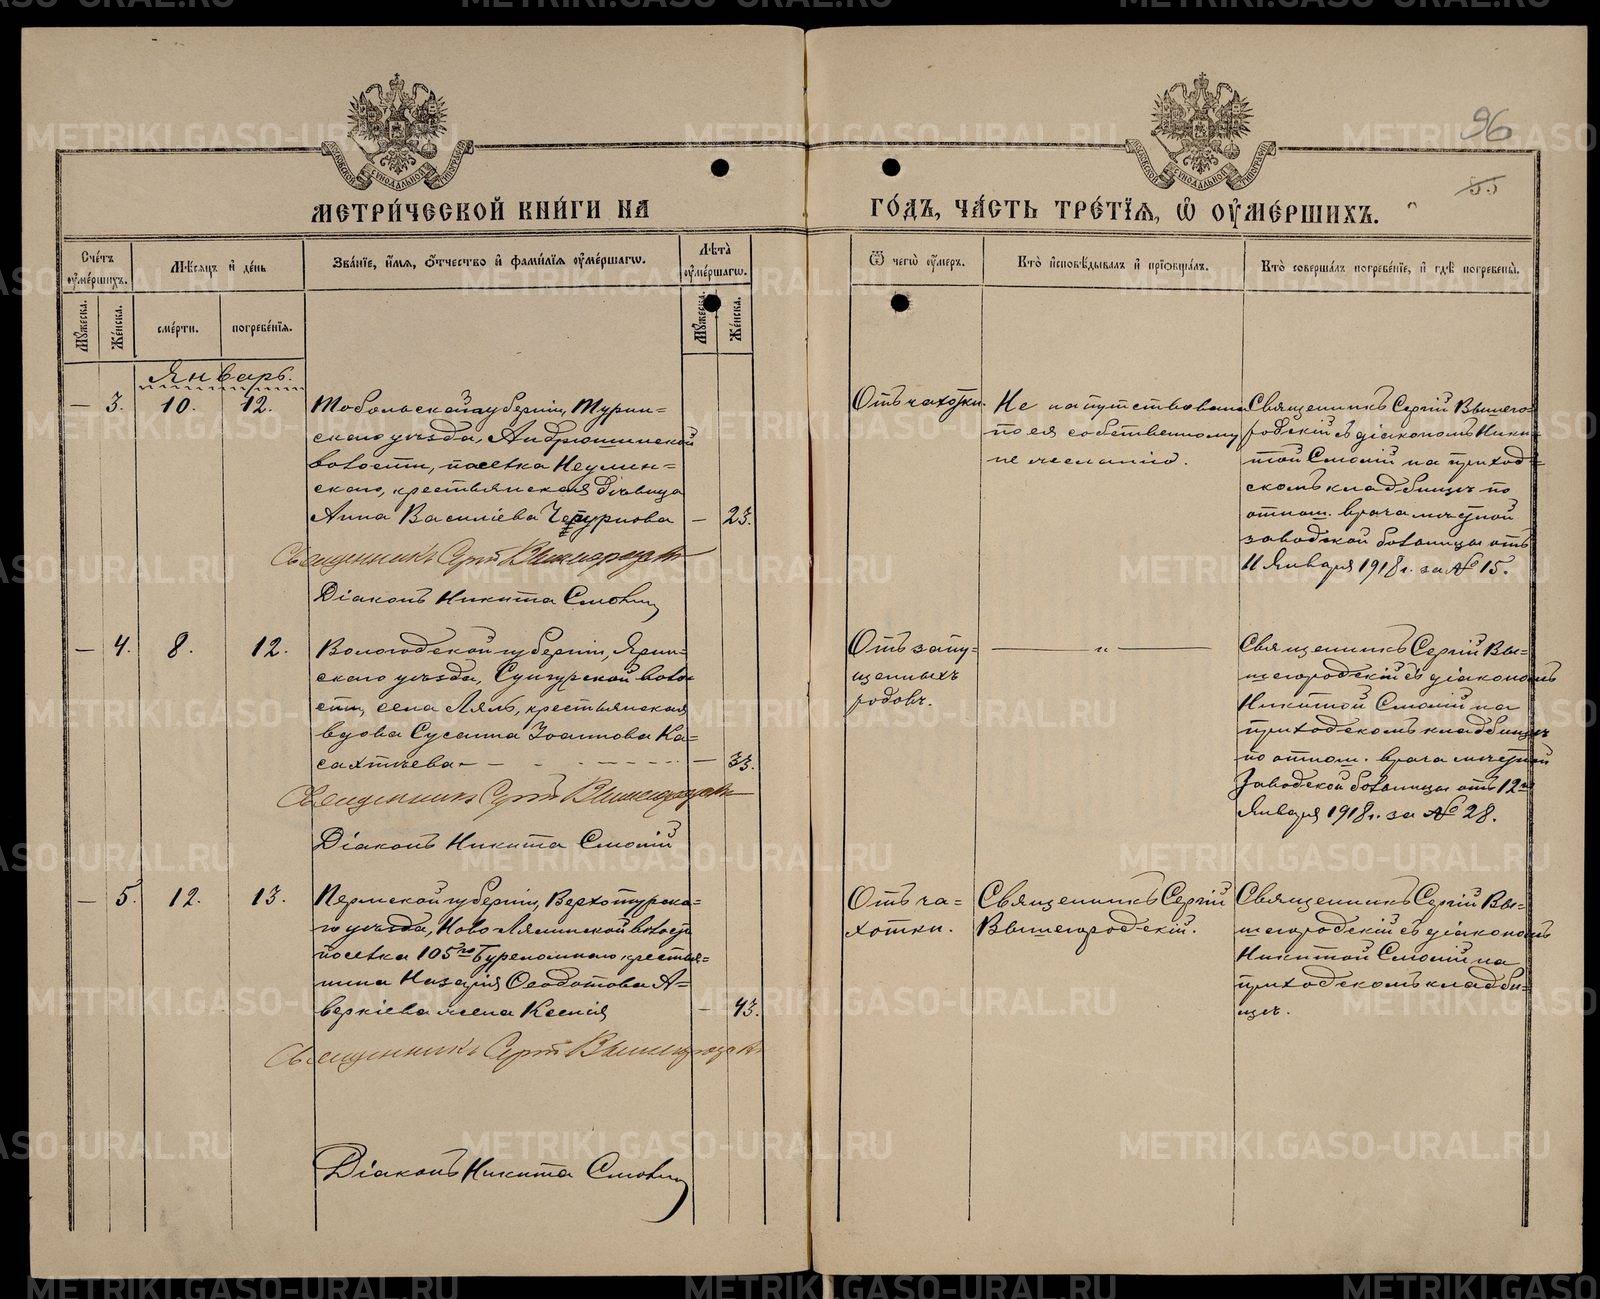 96
55
МЕТРИ́ЧЕСКОЙ КНИ́ГИ НА
ГО́ДЪ, ЧА́СТЬ ТРЕ́ТІѦ, Ѿ ОУ҆МЕ́РШИХЪ.
Сче́тъ оу҆ме́ршихъ.
Мѣ́сѧцъ и҆ де́нь
Зва́нїе, и҆́мѧ, ѻ҆́тчество и҆ фами́лїѧ оу҆ме́ршагѡ.
Лѣ́та оу҆ме́ршагѡ.
Ѿ чегѡ̀ оу҆́меръ.
Кто̀ и҆сповѣ́дывалъ и҆ прїобща́лъ.
Кто̀ соверша́лъ погребе́нїе, и҆ гдѣ̀ погребены̀.
Мꙋ́жеска.
Же́нска.
сме́рти.
погребе́нїѧ.
Мꙋ́жеска.
Же́нска.
Январь.
— 3. 10. 12.
Тобольской губерніи, Турин-
скаго уѣзда, Андрюшинской
волости, поселка Неулин-
скаго, крестьянская дѣвица
Анна Василіева Чепурнова — 23.
Священникъ Сергій Вышегородскій
Діаконъ Никита Смолій
Отъ чахотки.
Не напутствована
по ея собственному
не желанію.
Священникъ Сергій Вышего-
родскій съ діакономъ Ники-
той Смолій на приход-
скомъ кладбищѣ по
отнош. врача мѣстной
заводской больницы отъ
11 Января 1918 г. за № 15.
— 4. 8. 12.
Вологодской губерніи, Ярин-
скаго уѣзда, воло-
сти, села Лялъ, крестьянская
вдова Сусанна Іоаннова Ка-
— 33.
Священникъ Сергій Вышегородскій
Діаконъ Никита Смолій
Отъ запу-
щенныхъ
родовъ.
— „ —
Священникъ Сергій Вы-
шегородскій съ діакономъ
Никитой Смолій на
приходскомъ кладбищѣ
по отнош. врача мѣстной
Заводской больницы отъ 12го
Января 1918 г. за № 28.
— 5. 12. 13.
Пермской губерніи, Верхотурска-
го уѣзда, Ново Лялинской волости
поселка 105го Буреломнаго крестья-
нина Назарія Ѳеодотова А-
веркіева жена Ксенія — 43.
Священникъ Сергій Вышегородскій
Діаконъ Никита Смолій
Отъ ча-
хотки.
Священникъ Сергій
Вышегородскій.
Священникъ Сергій Вы-
шегородскій съ діакономъ
Никитой Смолій на
приходскомъ кладби-
щѣ.
METRIKI.GASO-URAL.RU